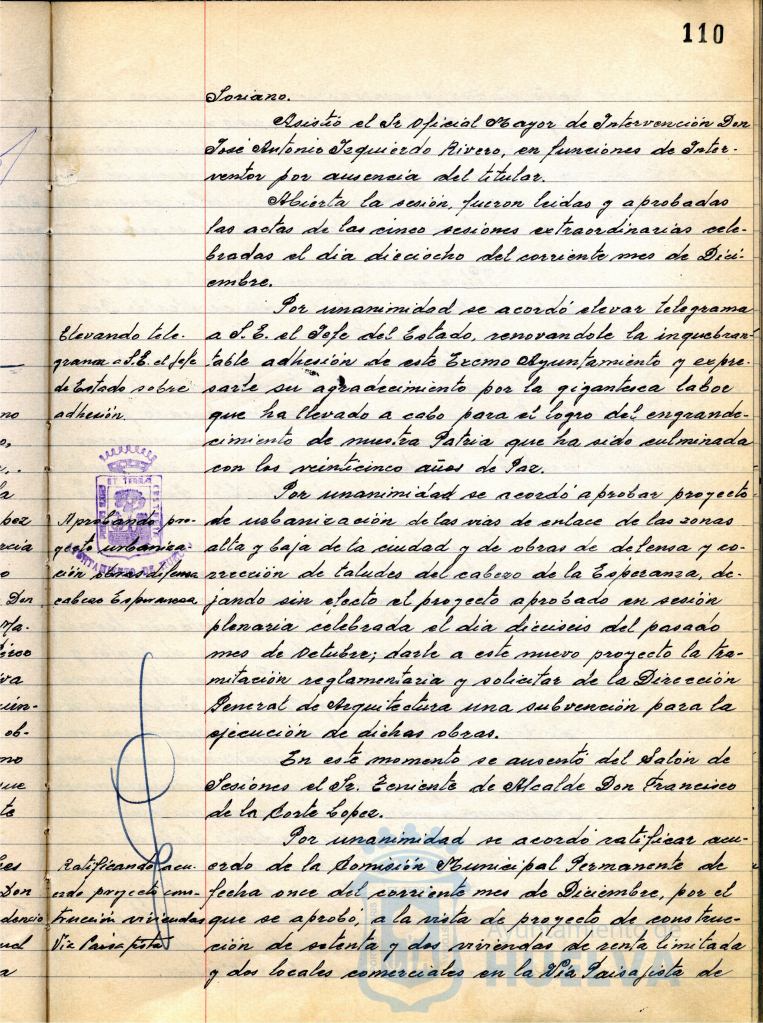 110
Soriano.
Asistió el Sr Oficial Mayor de Intervención Don
José Antonio Izquierdo Rivero, en funciones de Inter-
ventor por ausencia del titular.
Abierta la sesión, fueron leidas y aprobadas
las actas de las cinco sesiones extraordinarias cele-
bradas el dia dieciocho del corriente mes de Dici-
embre.
Elevando tele-
grama a S.E. el Jefe
de Estado sobre
adhesión.
Por unanimidad se acordó elevar telegrama
a S.E. el Jefe del Estado, renovandole la inquebran-
table adhesión de este Excmo Ayuntamiento y expre-
sarle su agradecimiento por la gigantesca labor
que ha llevado a cabo para el logro del engrande-
cimiento de nuestra Patria que ha sido culminada
con los veinticinco años de Paz.
Aprobando pro-
yecto urbaniza-
ción obras defensa
cabezo Esperanza
Por unanimidad se acordó aprobar proyecto
de urbanización de las vias de enlace de las zonas
alta y baja de la ciudad y de obras de defensa y co-
rrección de taludes del cabezo de la Esperanza, de-
jando sin efecto el proyecto aprobado en sesión
plenaria celebrada el día dieciseis del pasado
mes de Octubre; darle a este nuevo proyecto la tra-
mitación reglamentaria y solicitar de la Dirección
General de Arquitectura una subvención para la
ejecución de dichas obras.
En este momento se ausentó del Salón de
Sesiones el Sr. Teniente de Alcalde Don Francisco
de la Corte Lopez.
Ratificando acu-
erdo proyecto cons-
trucción viviendas
Via Paisajista
Por unanimidad se acordó ratificar acu-
erdo de la Comisión Municipal Permanente de
fecha once del corriente mes de Diciembre, por el
que se aprobó, a la vista de proyecto de construc-
ción de setenta y dos viviendas de renta limitada
y dos locales comerciales en la Vía Paisajista de
Ayuntamiento de
HUELVA